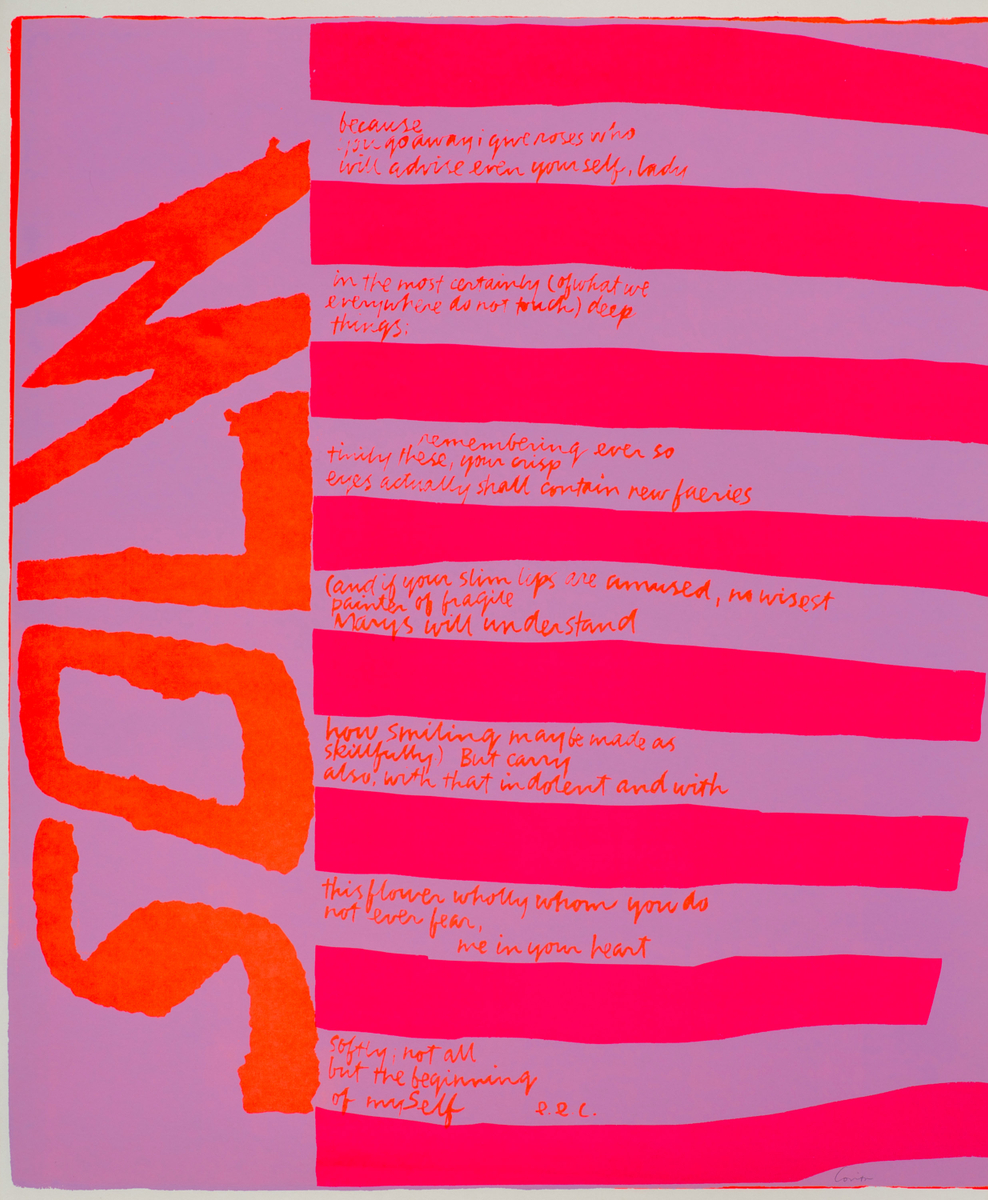 SOLW
because
you go away i give roses who
will advise even yourself, lady
in the most certainly (of what we
everywhere do not touch) deep
things;
remembering ever so
tinily these, your crisp
eyes actually shall contain new faeries
(and if your slim lips are amused, no wisest
painter of fragile
Marys will understand
how smiling may be made as
skillfully) But carry
also, with that indolent and with
this flower wholly whom you do
not ever fear,
me in your heart
softly; not all
but the beginning
of mySelf e e c.